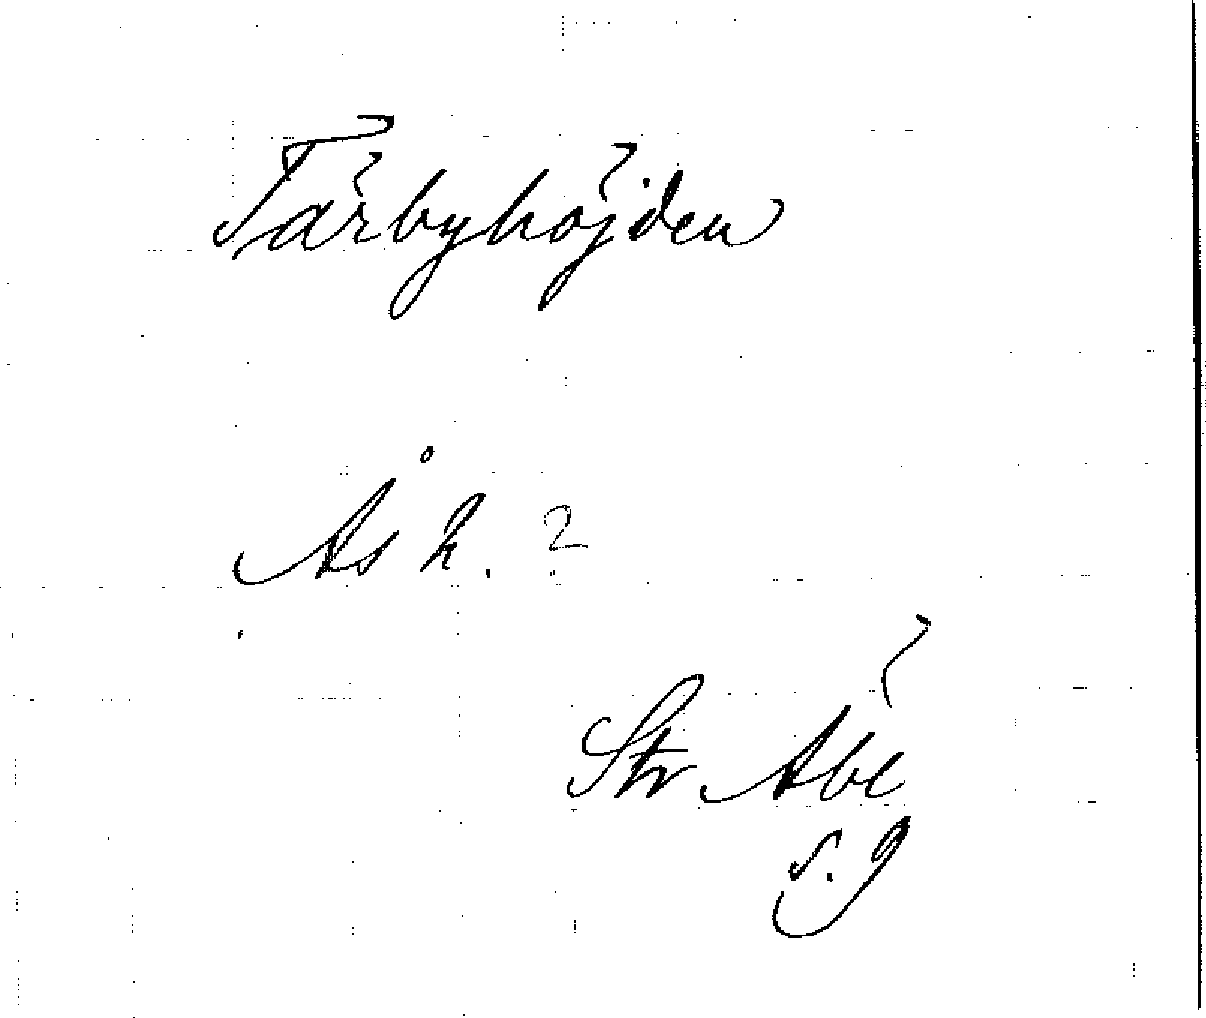 Tärbyhöjden
Ås h. 2
Str Abc
s. 9